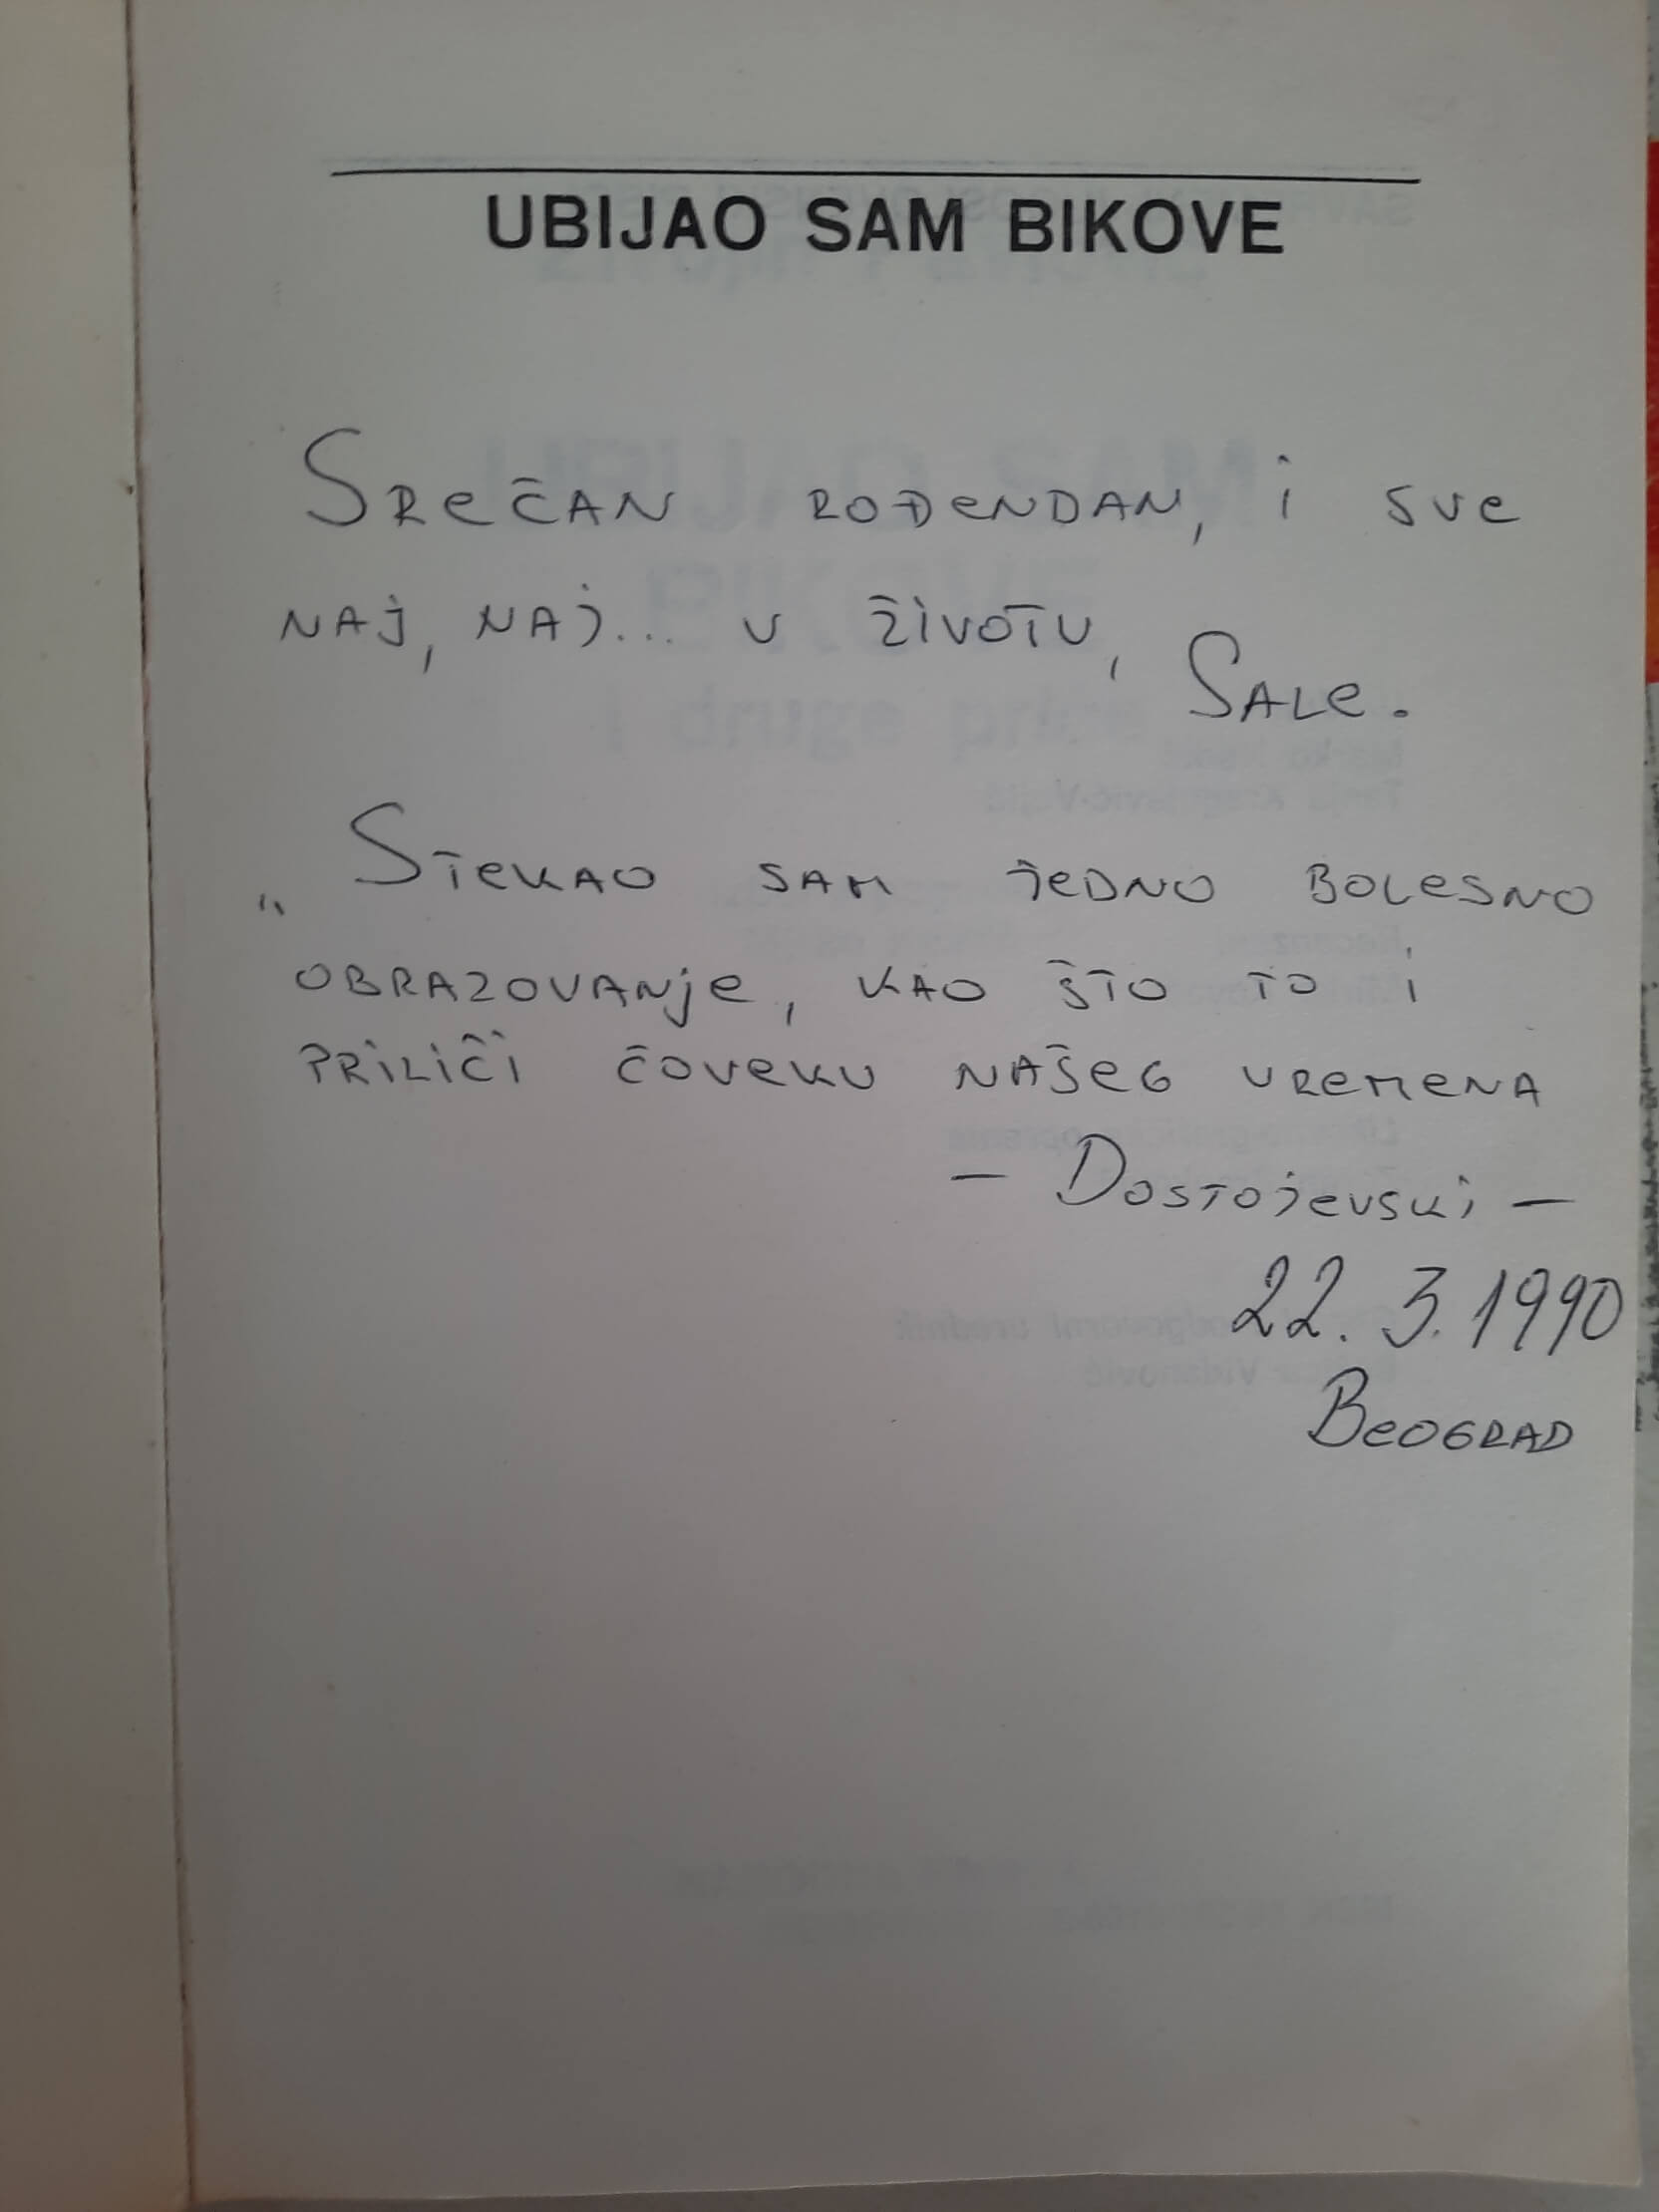 UBIJAO SAM BIKOVE
SREČAN ROĐENDAN, i SVE
NAJ, NAJ... U ŽIVOTU,
SALE.
„STEKAO SAM JEDNO BOLESNO
OBRAZOVANJE, KAO ŠTO TO i
PRILIČI ČOVEKU NAŠEG VREMENA
— DOSTOJEVSKI —
22. 3. 1990
BEOGRAD